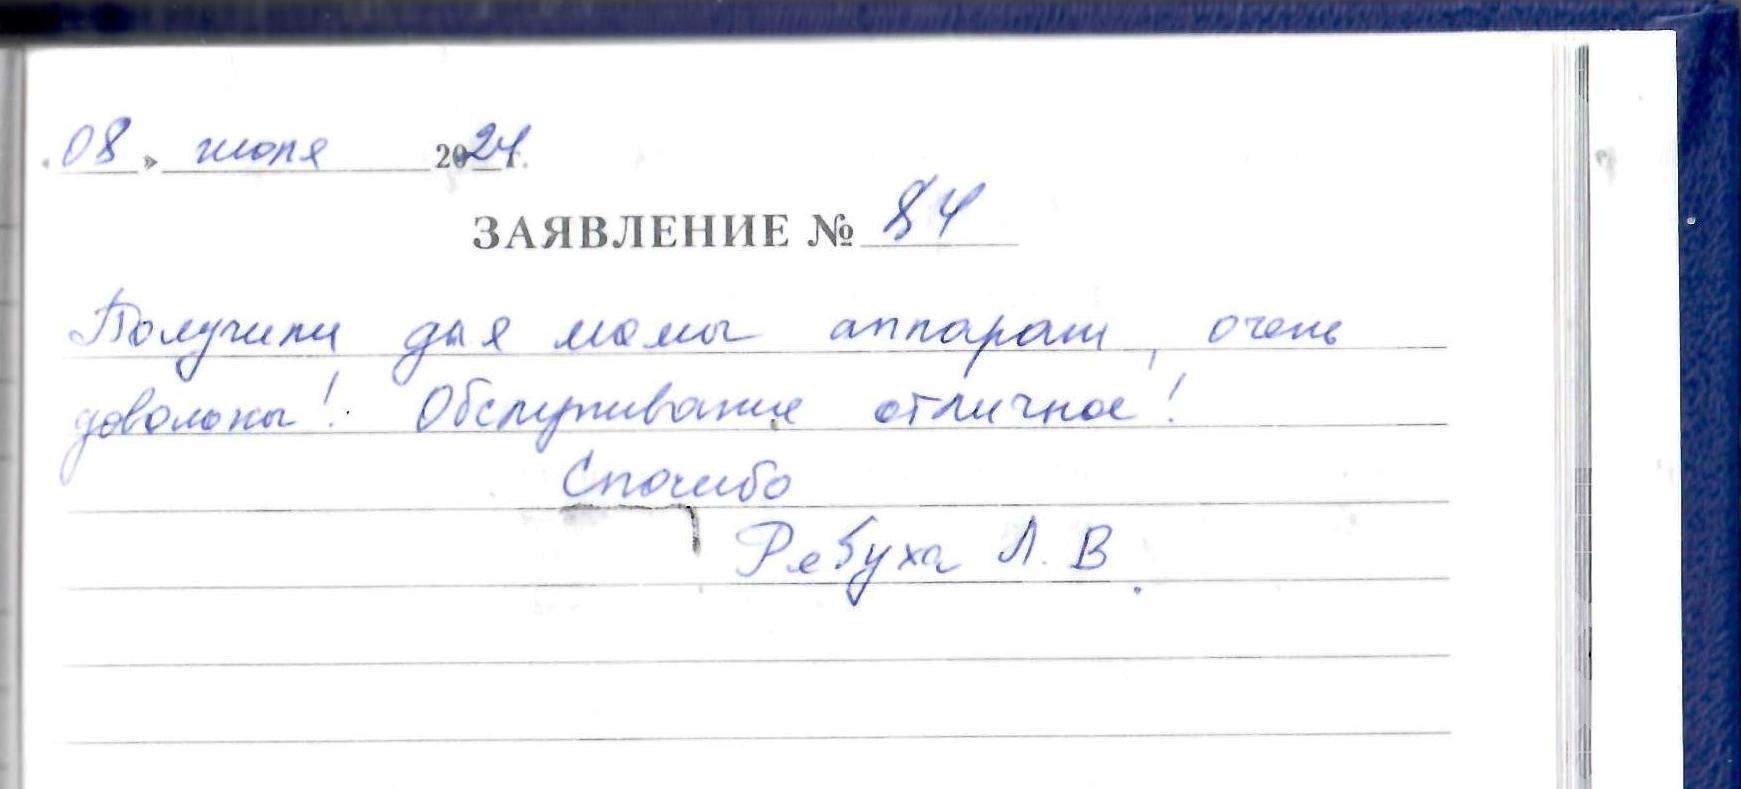 «08» июля 2024 г.
ЗАЯВЛЕНИЕ № 84
Получили для мамы аппарат, очень
довольны! Обслуживание отличное!
Спасибо
Ребуха Л. В.